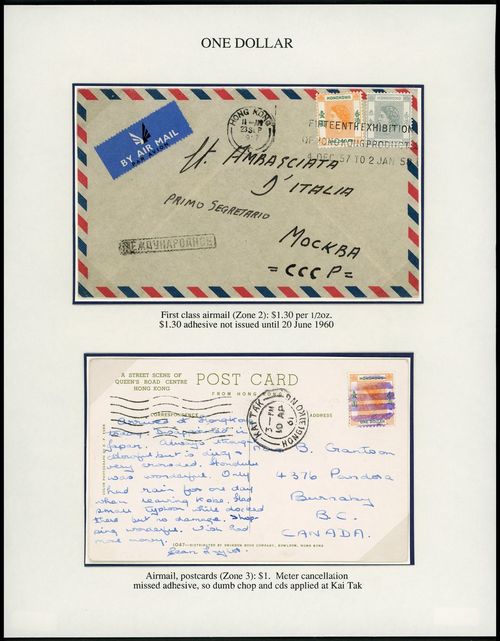 ONE DOLLAR
HONG KONG
23 SEP
HONG KONG
FIFTEENTH EXHIBITION
OF HONG KONG PRODUCTS
DEC 57 TO 2 JAN 58
BY AIR MAIL
PAR AVION
AMBASCIATA
D'ITALIA
PRIMO SEGRETARIO
МОСКВА
= СССР =
МЕЖДУНАРОДНОЕ
First class airmail (Zone 2): $1.30 per 1/2oz.
$1.30 adhesive not issued until 20 June 1960
A STREET SCENE OF
QUEEN'S ROAD CENTRE
HONG KONG
POST CARD
FROM HONG KONG
CORRESPONDENCE
ADDRESS
KAI TAK
3-PM
10 AP
61
HONG KONG
ONE DOLLAR
Arrived at Hongkong
today
in
Japan. Always
colourful but is dirty &
very crowded. Honolulu
was wonderful. Only
had rain for one day
when leaving Kobe. Had
small typhoon while docked
there but no damage. Shop-
ping wonderful. Will
more money.
Jean
B.
4376 Pandora
Burnaby
B.C.
CANADA.
1047-DISTRIBUTED BY
COMPANY, KOWLOON, HONG KONG
Airmail, postcards (Zone 3): $1. Meter cancellation
missed adhesive, so dumb chop and cds applied at Kai Tak